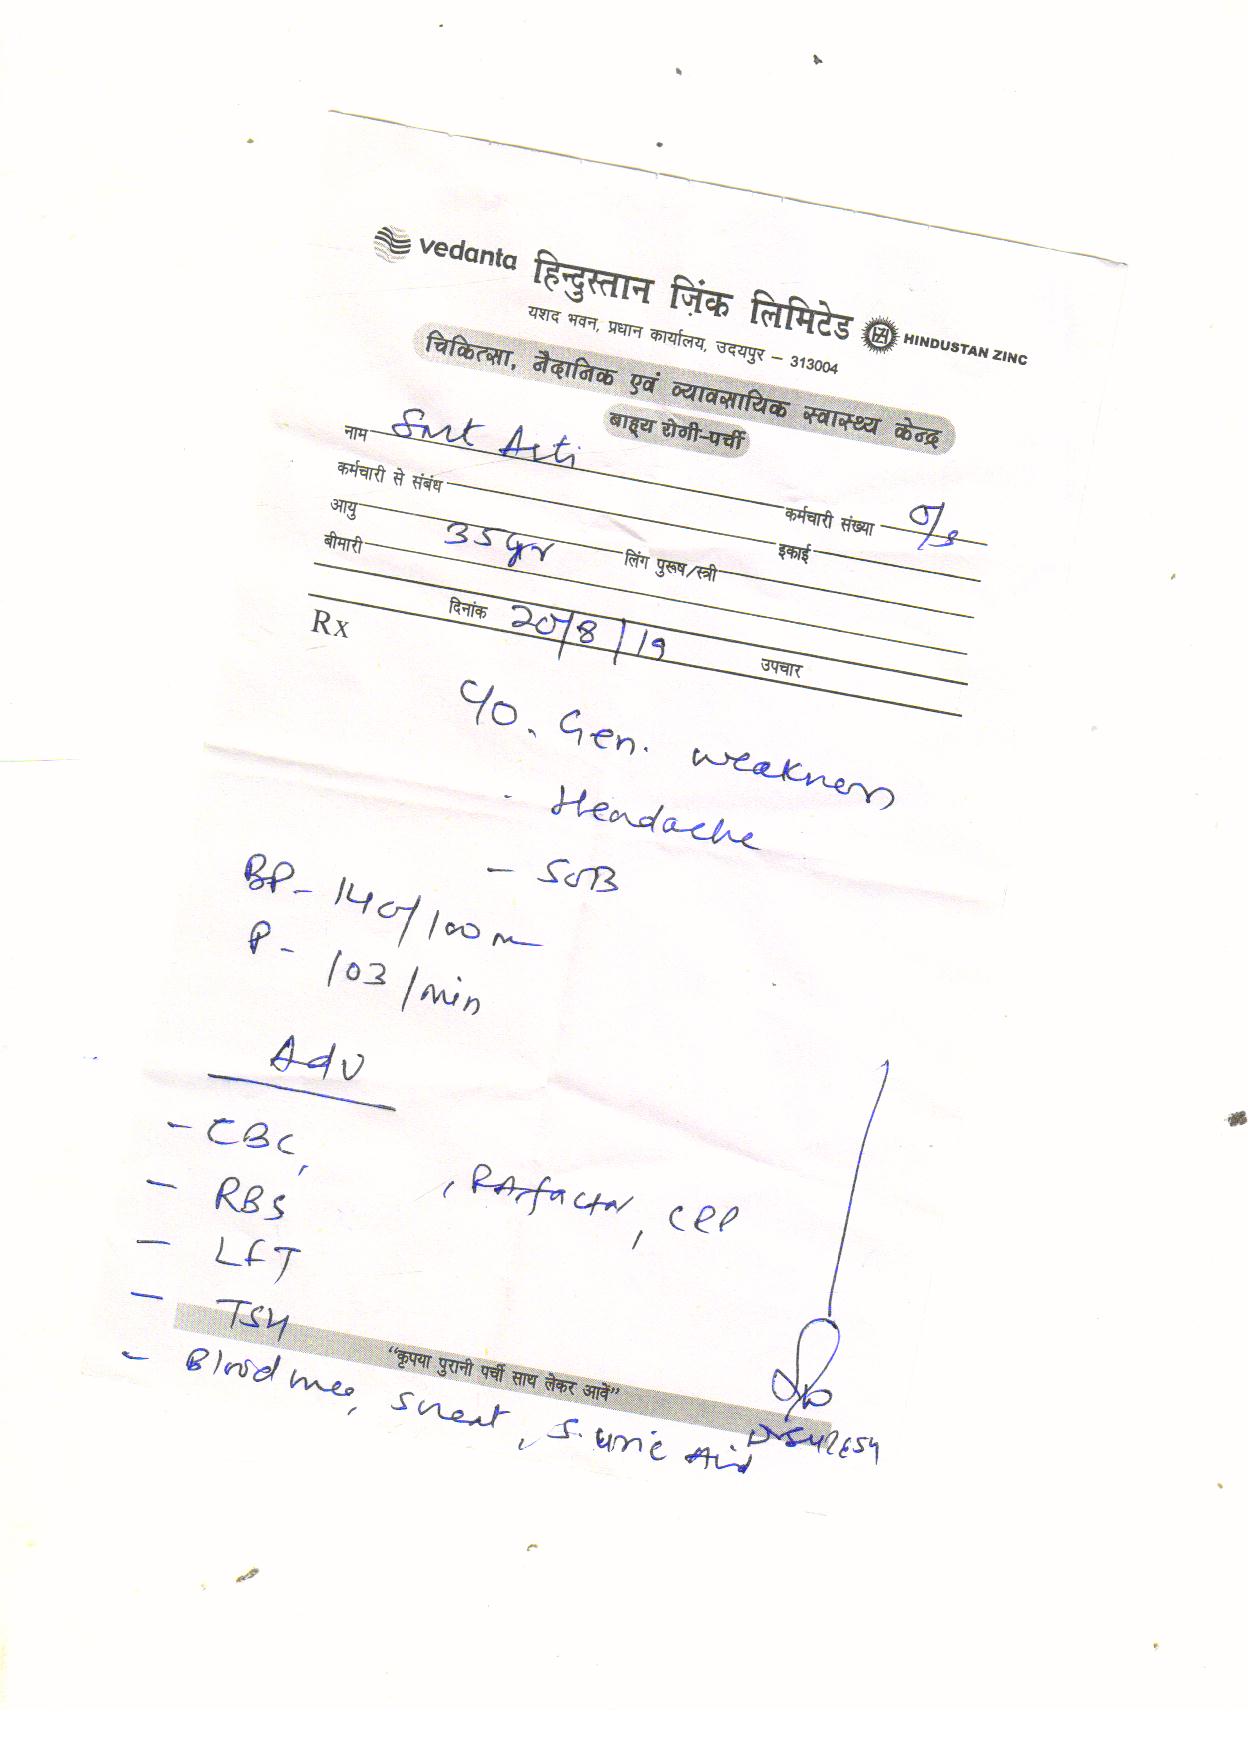 vedanta हिन्दुस्तान ज़िंक लिमिटेड HINDUSTAN ZINC
यशद भवन, प्रधान कार्यालय, उदयपुर – 313004
चिकित्सा, नैदानिक एवं व्यावसायिक स्वास्थ्य केन्द्र
बाह्य रोगी-पर्ची
नाम Smt Arti
कर्मचारी से संबंध कर्मचारी संख्या O/S
आयु 35 yr लिंग पुरूष/स्त्री इकाई
बीमारी
Rx दिनांक 20/8/19 उपचार
C/O. Gen. weakness
- Headache
- SOB
BP - 140/100 m
P - 103/min
Adv
- CBC,
- RBS , RA factor, CRP
- LFT
- TSH
"कृपया पुरानी पर्ची साथ लेकर आवें"
- Blood urea, S creat, S. Uric Acid